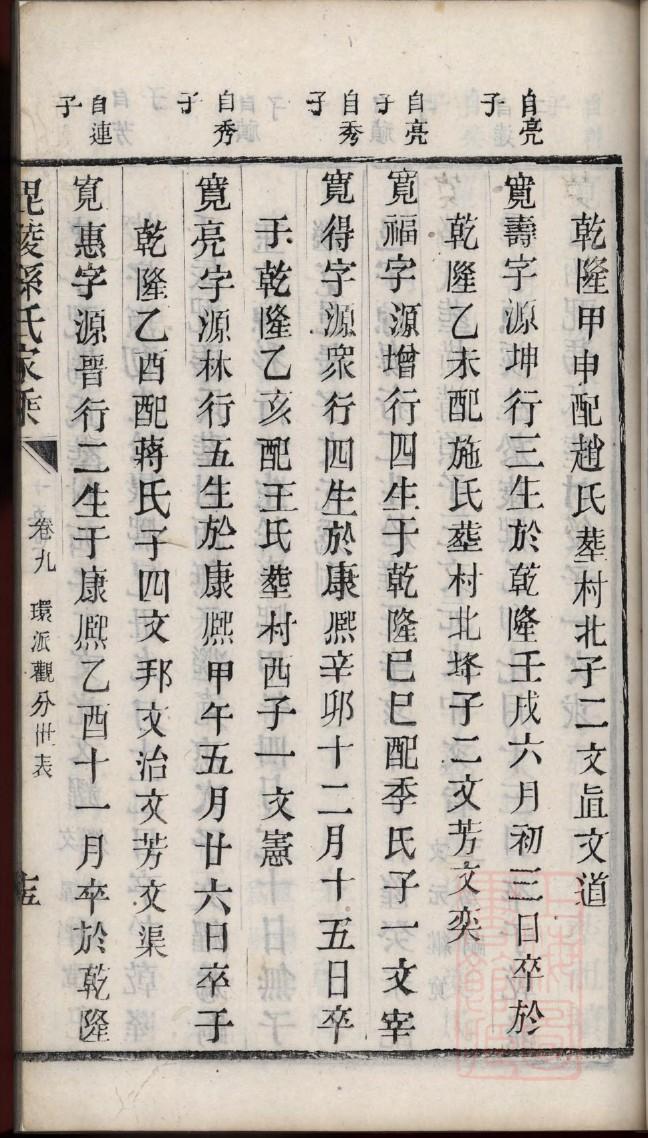 乾隆甲申配趙氏塟村北子二文直文道
自亮子
寬壽字源坤行三生於乾隆壬戌六月初三日卒於
乾隆乙未配施氏塟村北埄子二文芳文奕
自亮子
寬福字源增行四生于乾隆己巳配季氏子一文宰
自秀子
寬得字源眾行四生於康熙辛卯十二月十五日卒
于乾隆乙亥配王氏塟村西子一文憲
自秀子
寬亮字源林行五生於康熙甲午五月廿六日卒子
乾隆乙酉配蔣氏子四文邦文治文芳文渠
自連子
寬惠字源晉行二生于康熙乙酉十一月卒於乾隆
毘陵孫氏家乘
卷九
環派觀分世表